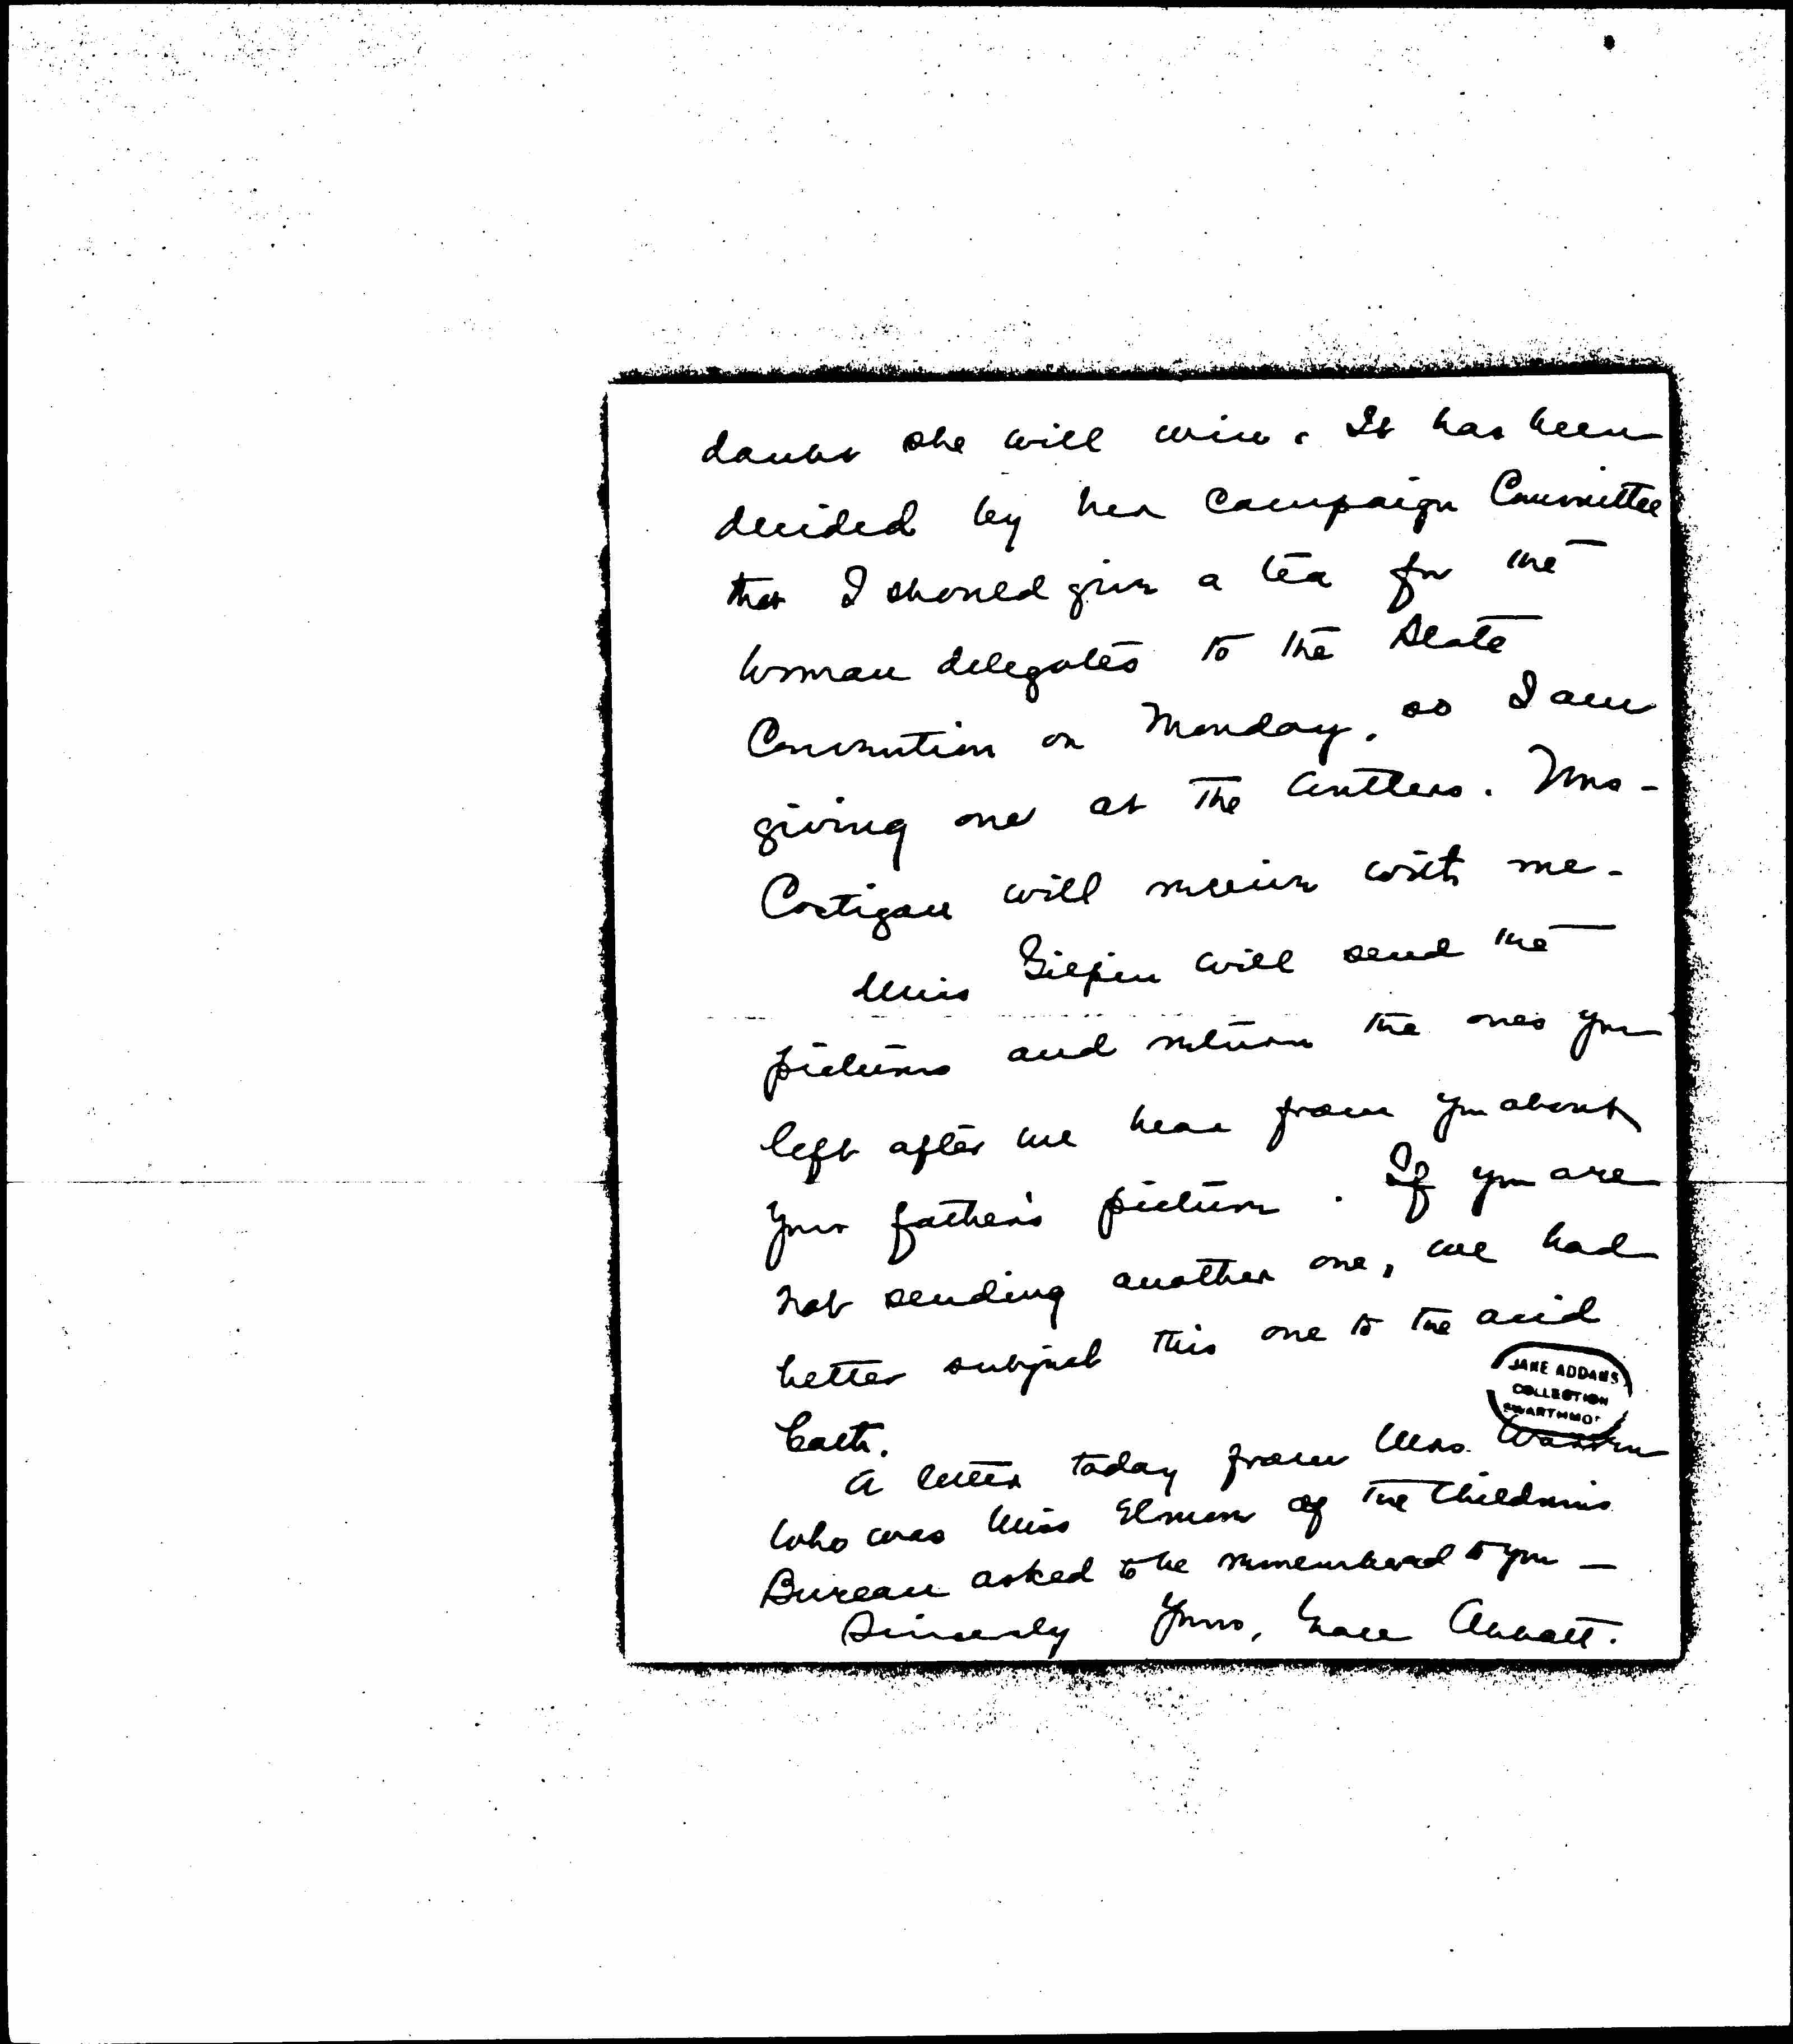 doubt she will win. It has been
decided by her Campaign Committee
that I should give a tea for the
woman delegates to the State
Convention on Monday, so I am
giving one at the Antlers. Mrs-
Costigan will receive with me-
Miss Gilpin will send the
pictures and return the ones you
left after we hear from you about
your father's picture. If you are
not sending another one, we had
better subject this one to the acid
bath.
JANE ADDAMS
COLLECTION
SWARTHMO
A letter today from Mrs. Warren
who was Miss Elmore of the Children's
Bureau asked to be remembered to you —
Sincerely Yours, Grace Abbott.